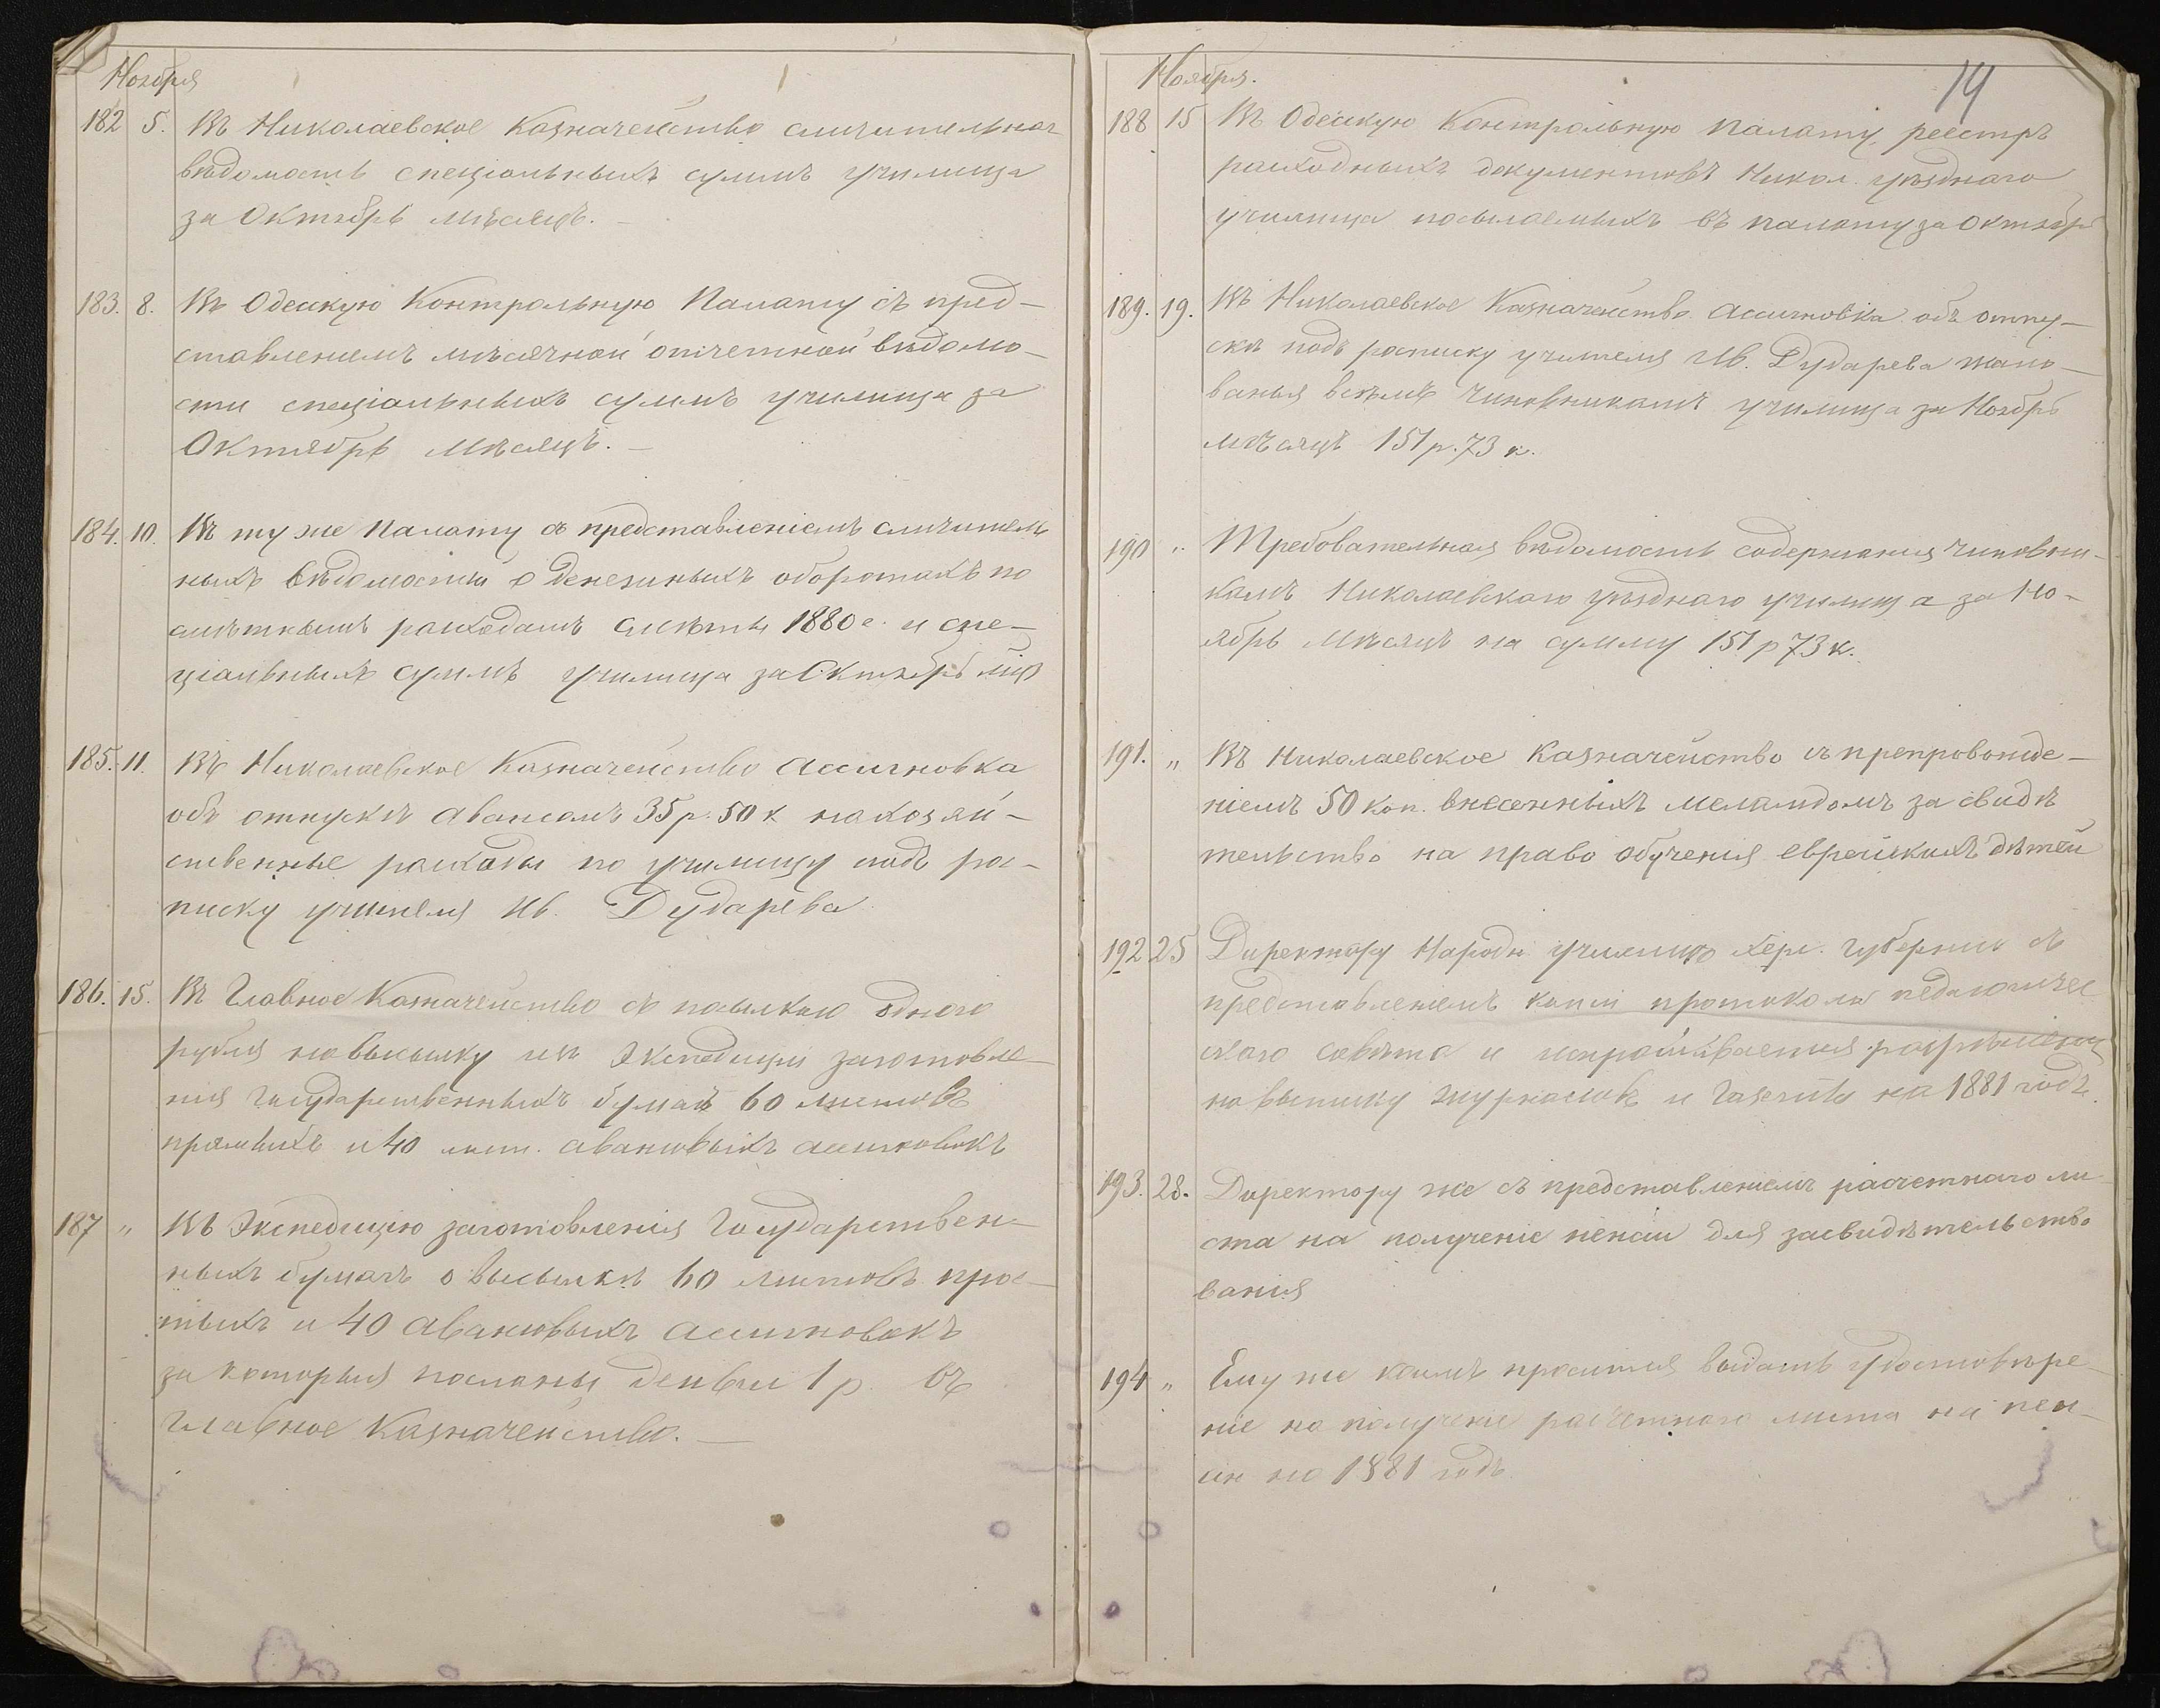 Ноября
182 5. Въ Николаевское Казначейство сличительная
вѣдомость спеціальныхъ суммъ училища
за Октябрь мѣсяцъ. –
183. 8. Въ Одесскую Контрольную Палату съ пред-
ставленіемъ мѣсячной отчетной вѣдомо-
сти спеціальныхъ суммъ училища за
Октябрь мѣсяцъ. –
184. 10. Въ ту же Палату съ представленіемъ сличитель
ныхъ вѣдомостей о денежныхъ оборотахъ по
смѣтнымъ расходамъ смѣты 1880 г. и спе-
ціальныхъ суммъ училища за Октябрь
185. 11. Въ Николаевское Казначейство Ассигновка
объ отпускѣ авансомъ 35 р. 50 к на хозяй-
ственные расходы по училищу подъ рос-
писку учителя Ив. Дударева
186. 15. Въ Главное Казначейство съ посылкою одного
рубля на высылку изъ Экспедиціи заготовле-
нія Государственныхъ бумагъ 60 листовъ
прямыхъ и 40 лист. авансовыхъ ассигновокъ
187 „ Въ Экспедицію заготовленія Государствен-
ныхъ бумагъ о высылкѣ 60 листовъ прос-
тыхъ и 40 авансовыхъ ассигновокъ
за которыя посланы деньги 1 р. въ
Главное Казначейство. –
14
Ноября.
188 15 Въ Одесскую Контрольную Палату, реестръ
расходныхъ документовъ Никол. уѣзднаго
училища посылаемыхъ въ палату за Октябрь
189. 19. Въ Николаевское Казначейство Ассигновка объ отпу-
скѣ подъ росписку учителя Ив. Дударева жало-
ванья всѣмъ чиновникамъ училища за Ноябрь
мѣсяцъ 151 р. 73 к.
190 „ Требовательная вѣдомость содержанія чиновни-
камъ Николаевскаго уѣзднаго училища за Но-
ябрь мѣсяцъ на сумму 151 р 73 к.
191. „ Въ Николаевское Казначейство съ препровожде-
ніемъ 50 коп. внесенныхъ меламдомъ за свидѣ
тельство на право обученія еврейскихъ дѣтей
192 25 Директору Народн. училищъ Херс. губерніи съ
представленіемъ копіи протокола педагогичес
каго совѣта и испрашивается разрѣшенія
на выписку журналовъ и газеты на 1881 годъ.
193. 28. Директору же съ представленіемъ расчетнаго ли
ста на полученіе пенсіи для засвидѣтельство
ванія
194 „ Ему же коимъ просится выдать удостовѣре-
ніе на полученіе расчетнаго листа на пен-
сію на 1881 годъ